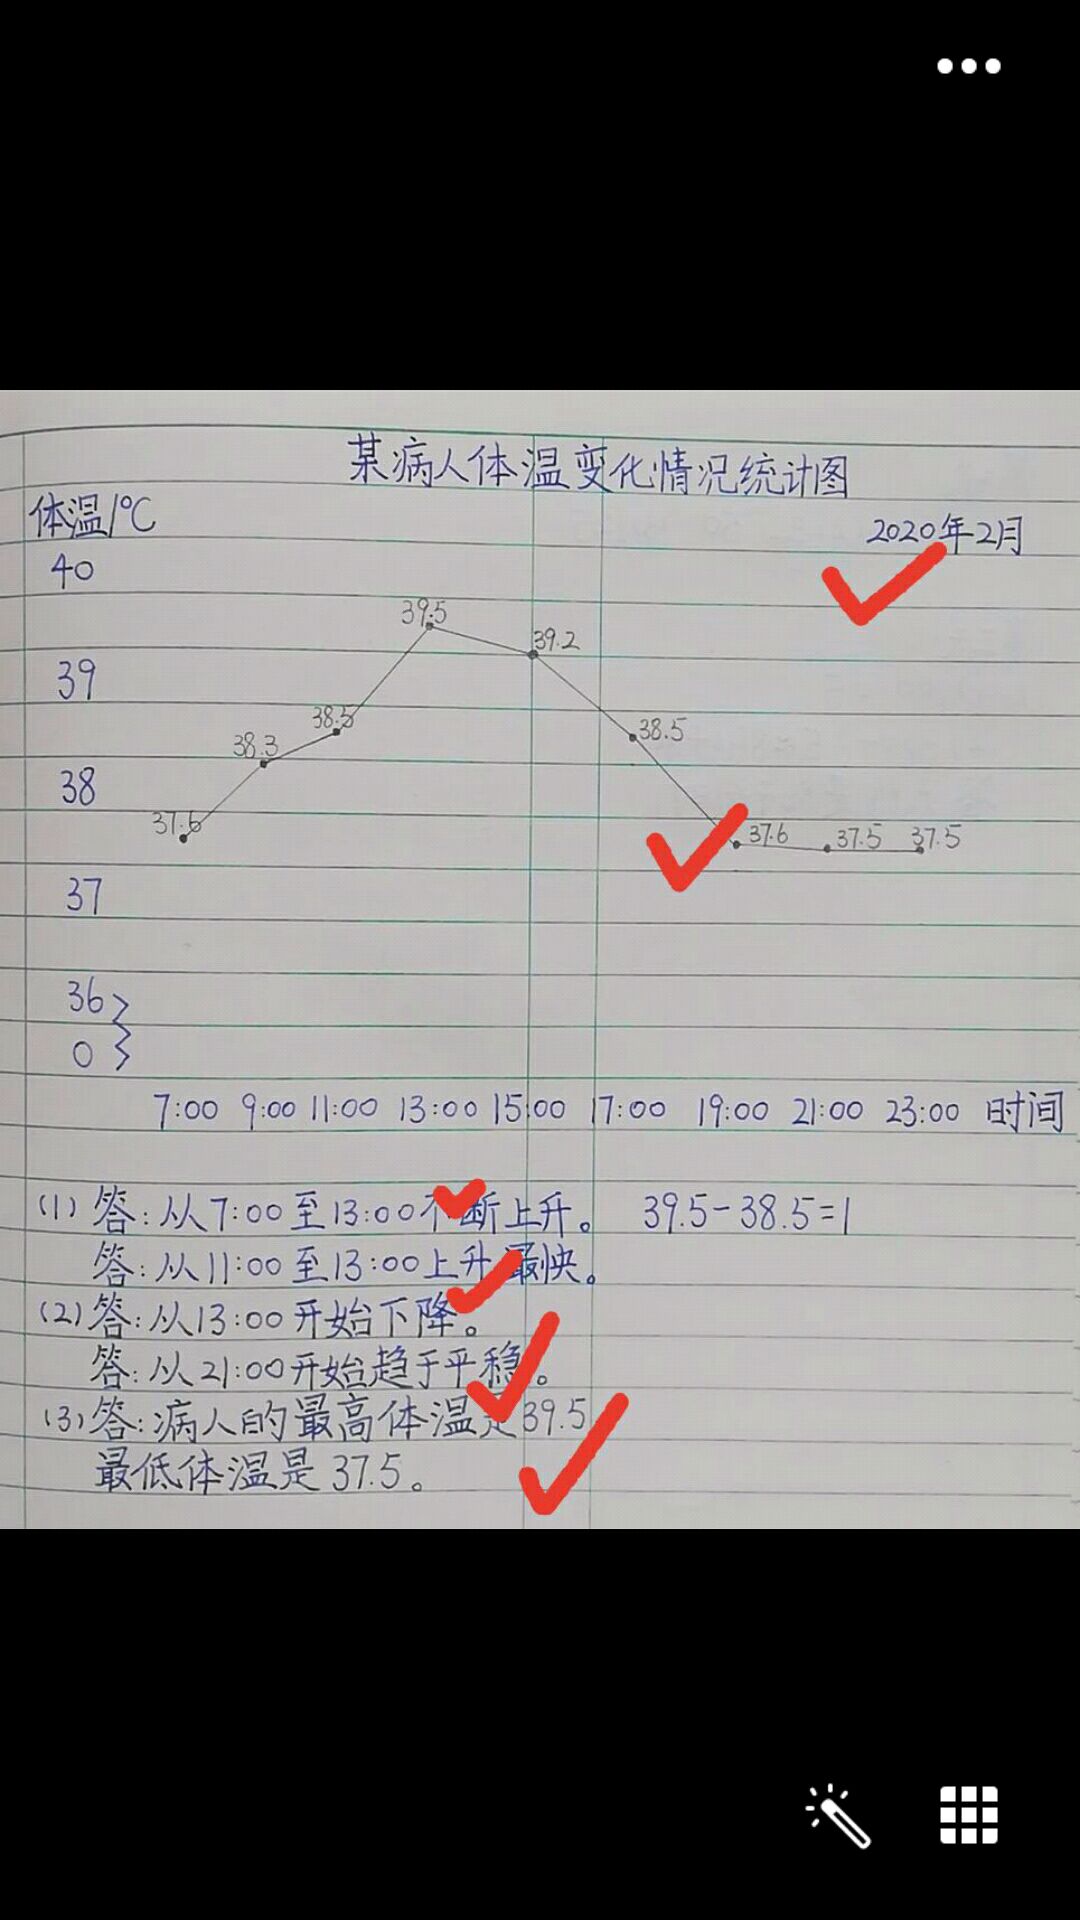 某病人体温变化情况统计图
体温/℃
2020年2月
40
39.5
39.2
39
38.5
38.5
38.3
38
37.6
37.6
37.5
37.5
37
36
0
7:00 9:00 11:00 13:00 15:00 17:00 19:00 21:00 23:00 时间
(1) 答:从7:00至13:00不断上升。 39.5-38.5=1
答:从11:00至13:00上升最快。
(2) 答:从13:00开始下降。
答:从21:00开始趋于平稳。
(3) 答:病人的最高体温是39.5
最低体温是37.5。